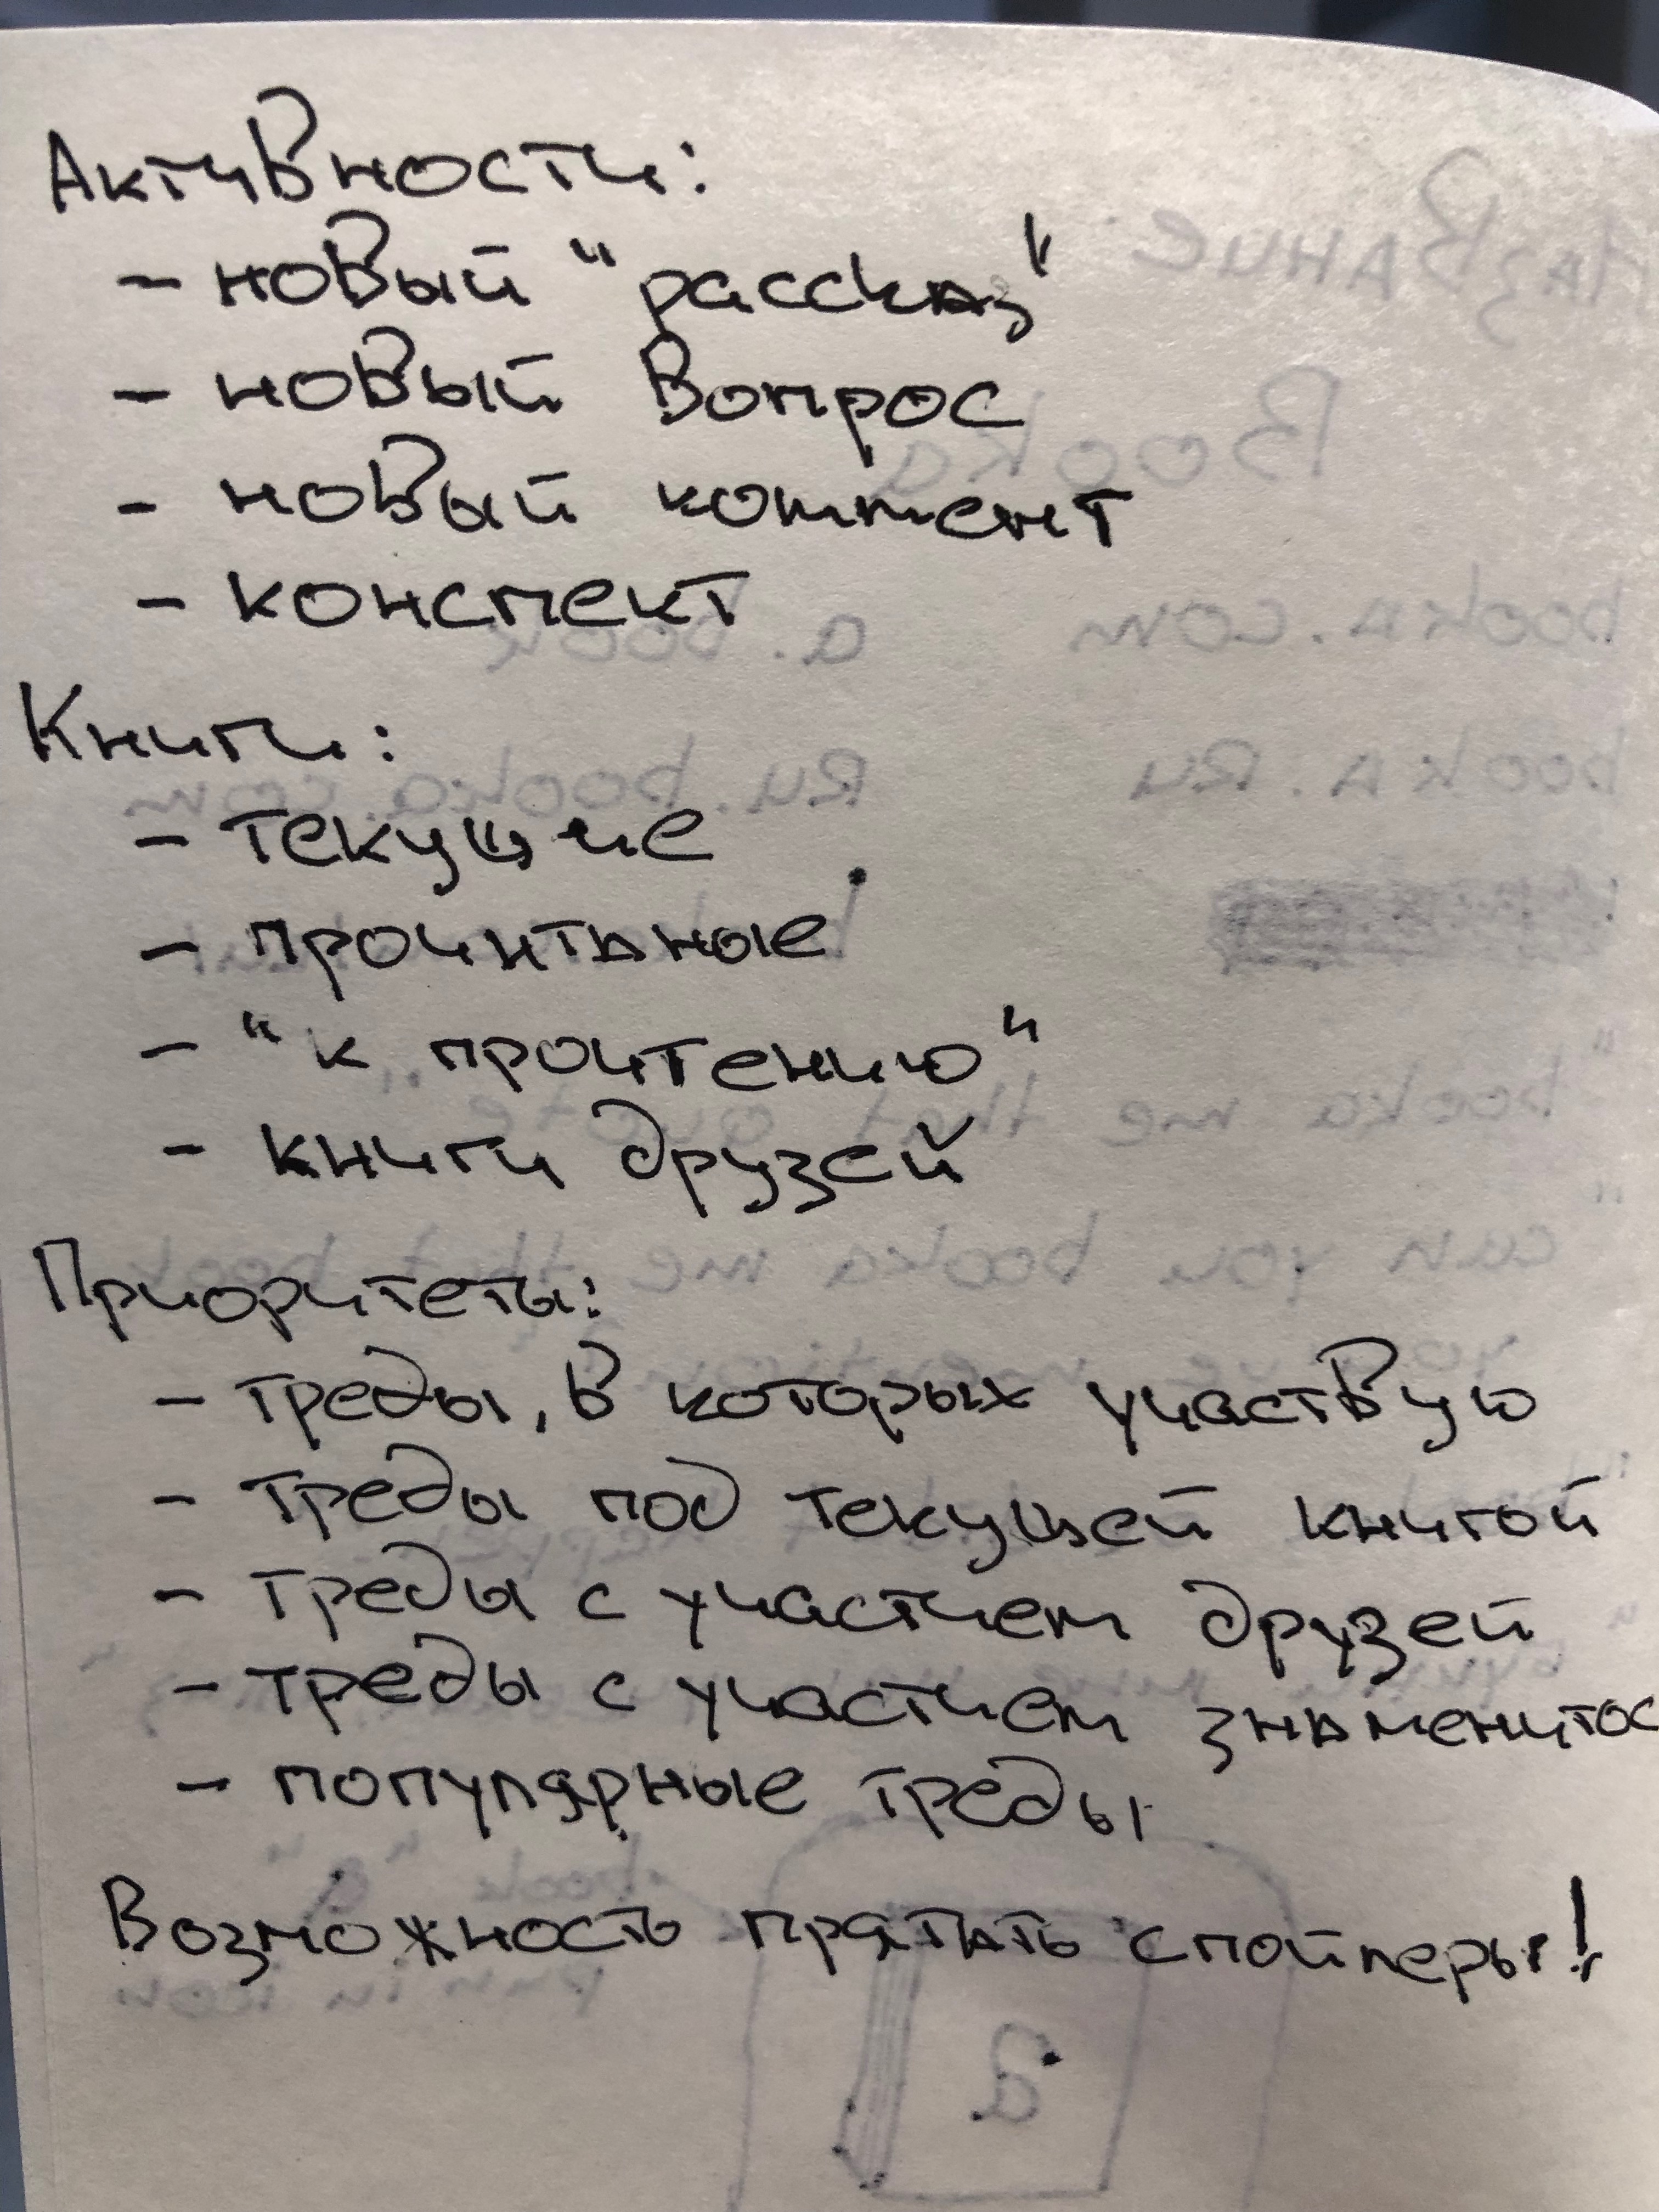 Активности:
- новый "рассказ"
- новый вопрос
- новый коммент
- конспект
Книги:
- текущие
- прочитаные
- "к прочтению"
- книги друзей
Приоритеты:
- треды, в которых участвую
- треды под текущей книгой
- треды с участием друзей
- треды с участием знаменитос
- популярные треды
Возможность прятать спойлеры!